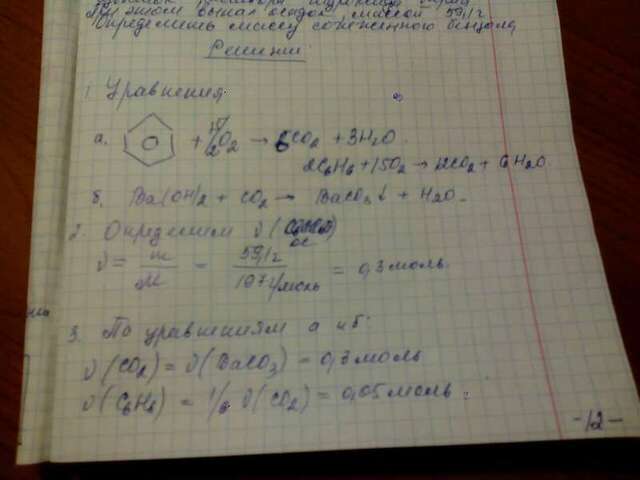 При этом выпал осадок, массой 59,1 г.
Определить массу сожженного бензола
Решение
1. Уравнения
а. + 15/2 O2 → 6CO2 + 3H2O
2C6H6 + 15O2 → 12CO2 + 6H2O
б. Ba(OH)2 + CO2 → BaCO3↓ + H2O
2. Определяем ν (
ос
ν = m/M = 59,1 г / 197 г/моль = 0,3 моль
3. По уравнениям а и б:
ν (CO2) = ν (BaCO3) = 0,3 моль
ν (C6H6) = 1/6 ν (CO2) = 0,05 моль.
-12-